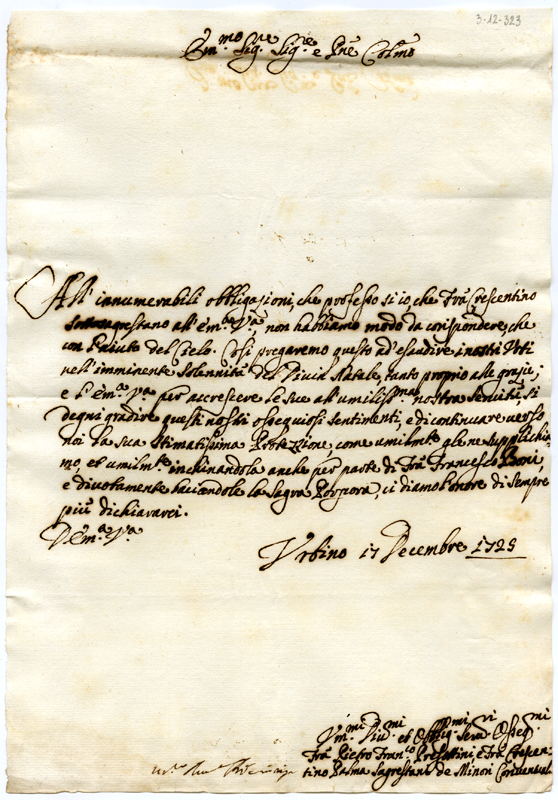 3-12-323
Em.mo Sig.re Sig.re e Pñe Col.mo
All' innumerabili obbligazioni, che professo sì io, che Frà Crescentino
Sottosagrestano all' Em.a V.a non habbiamo modo da corispondere, che
con l'aiuto del Cielo. Così pregaremo questo ad esaudire i nostri Voti
nell' imminente Solennità del Divin Natale, tanto proprio alle grazie;
e l' Em.a V.a per accrescere le sue all' umiliss.ma nostra Servitù, si
degni gradire questi nostri ossequiosi sentimenti, e di continuare verso
noi la sua Stimatissima Protezzione, come umilm.te ale ne supplichia-
mo, et umilm.te inchinandola anche per parte di Frà Francesco Boni,
e divotamente baciandole la Sagra Porpora, ci diamo l'onore di sempre
più dichiararci.
D' Em.a V.a
Urbino 17 Decembre 1725
Um.mi Div.mi et Obblig.mi Serv.ri Osseq.mi
Frà Pietro Fran.co Frà Crescen-
tino Palma Sagrestani de Minori Conventuali